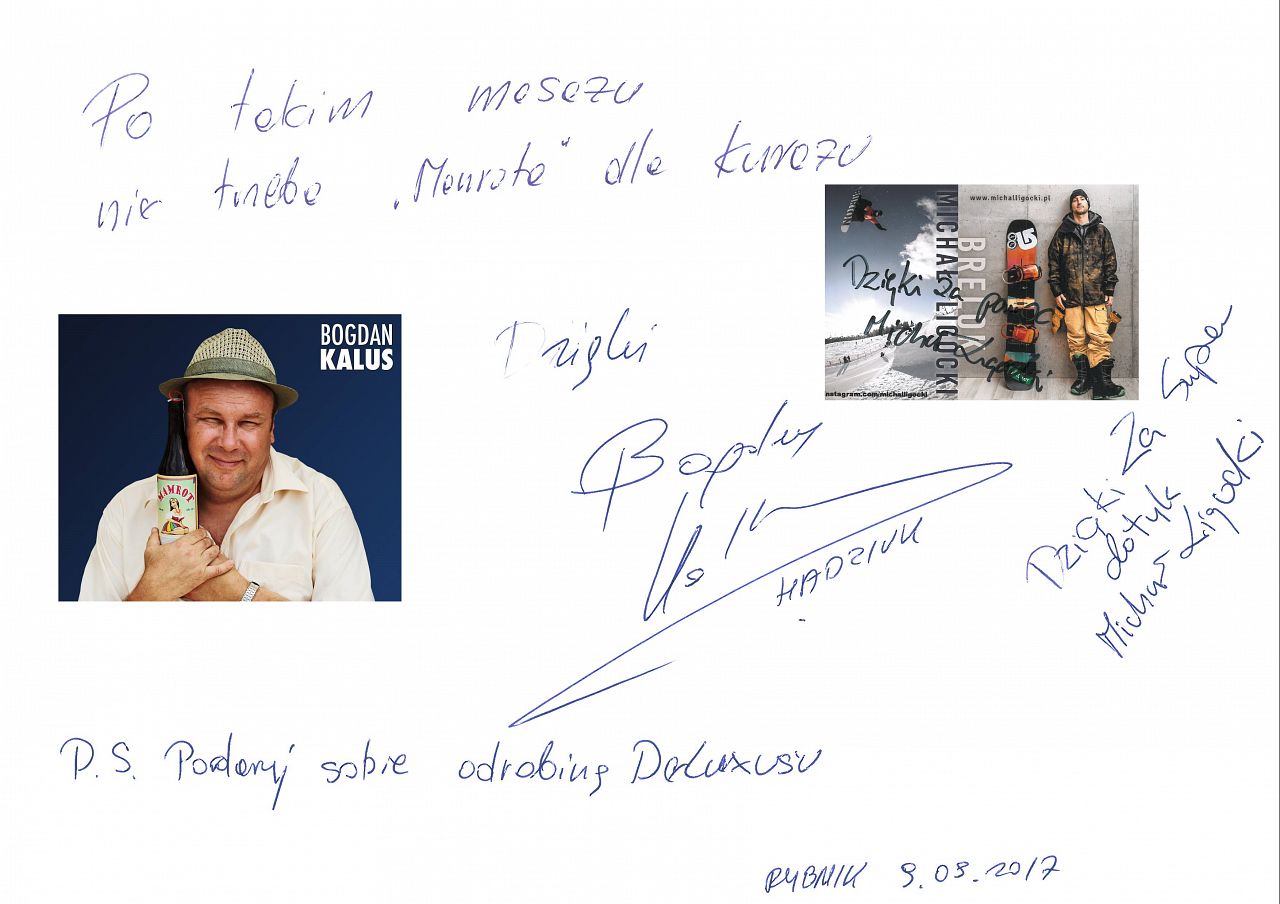 Po takim masażu
nie trzeba „Mamrota" dla kurażu
www.michalligocki.pl
MICHAŁ LIGOCKI
Dzięki za pomoc
Michał Ligocki
instagram.com/michalligocki
BOGDAN
KALUS
MAMROT
Dzięki
Bogdan
Kalus
HADZIUK
Dzięki za super
dotyk
Michał Ligocki
P.S. Podaruj sobie odrobinę DeLuxusu
RYBNIK 9.03.2017